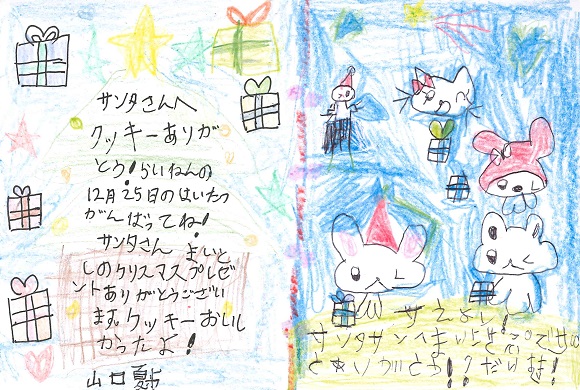 サンタさんへ
クッキーありが
とう!らいねんの
12月25日のはいたつ
がんばってね!
サンタさん まいと
しのクリスマスプレゼ
ントありがとうござい
ます。クッキーおいし
かったよ!
山口
すえよい!
サンタサンへまいとし
とありがとう!